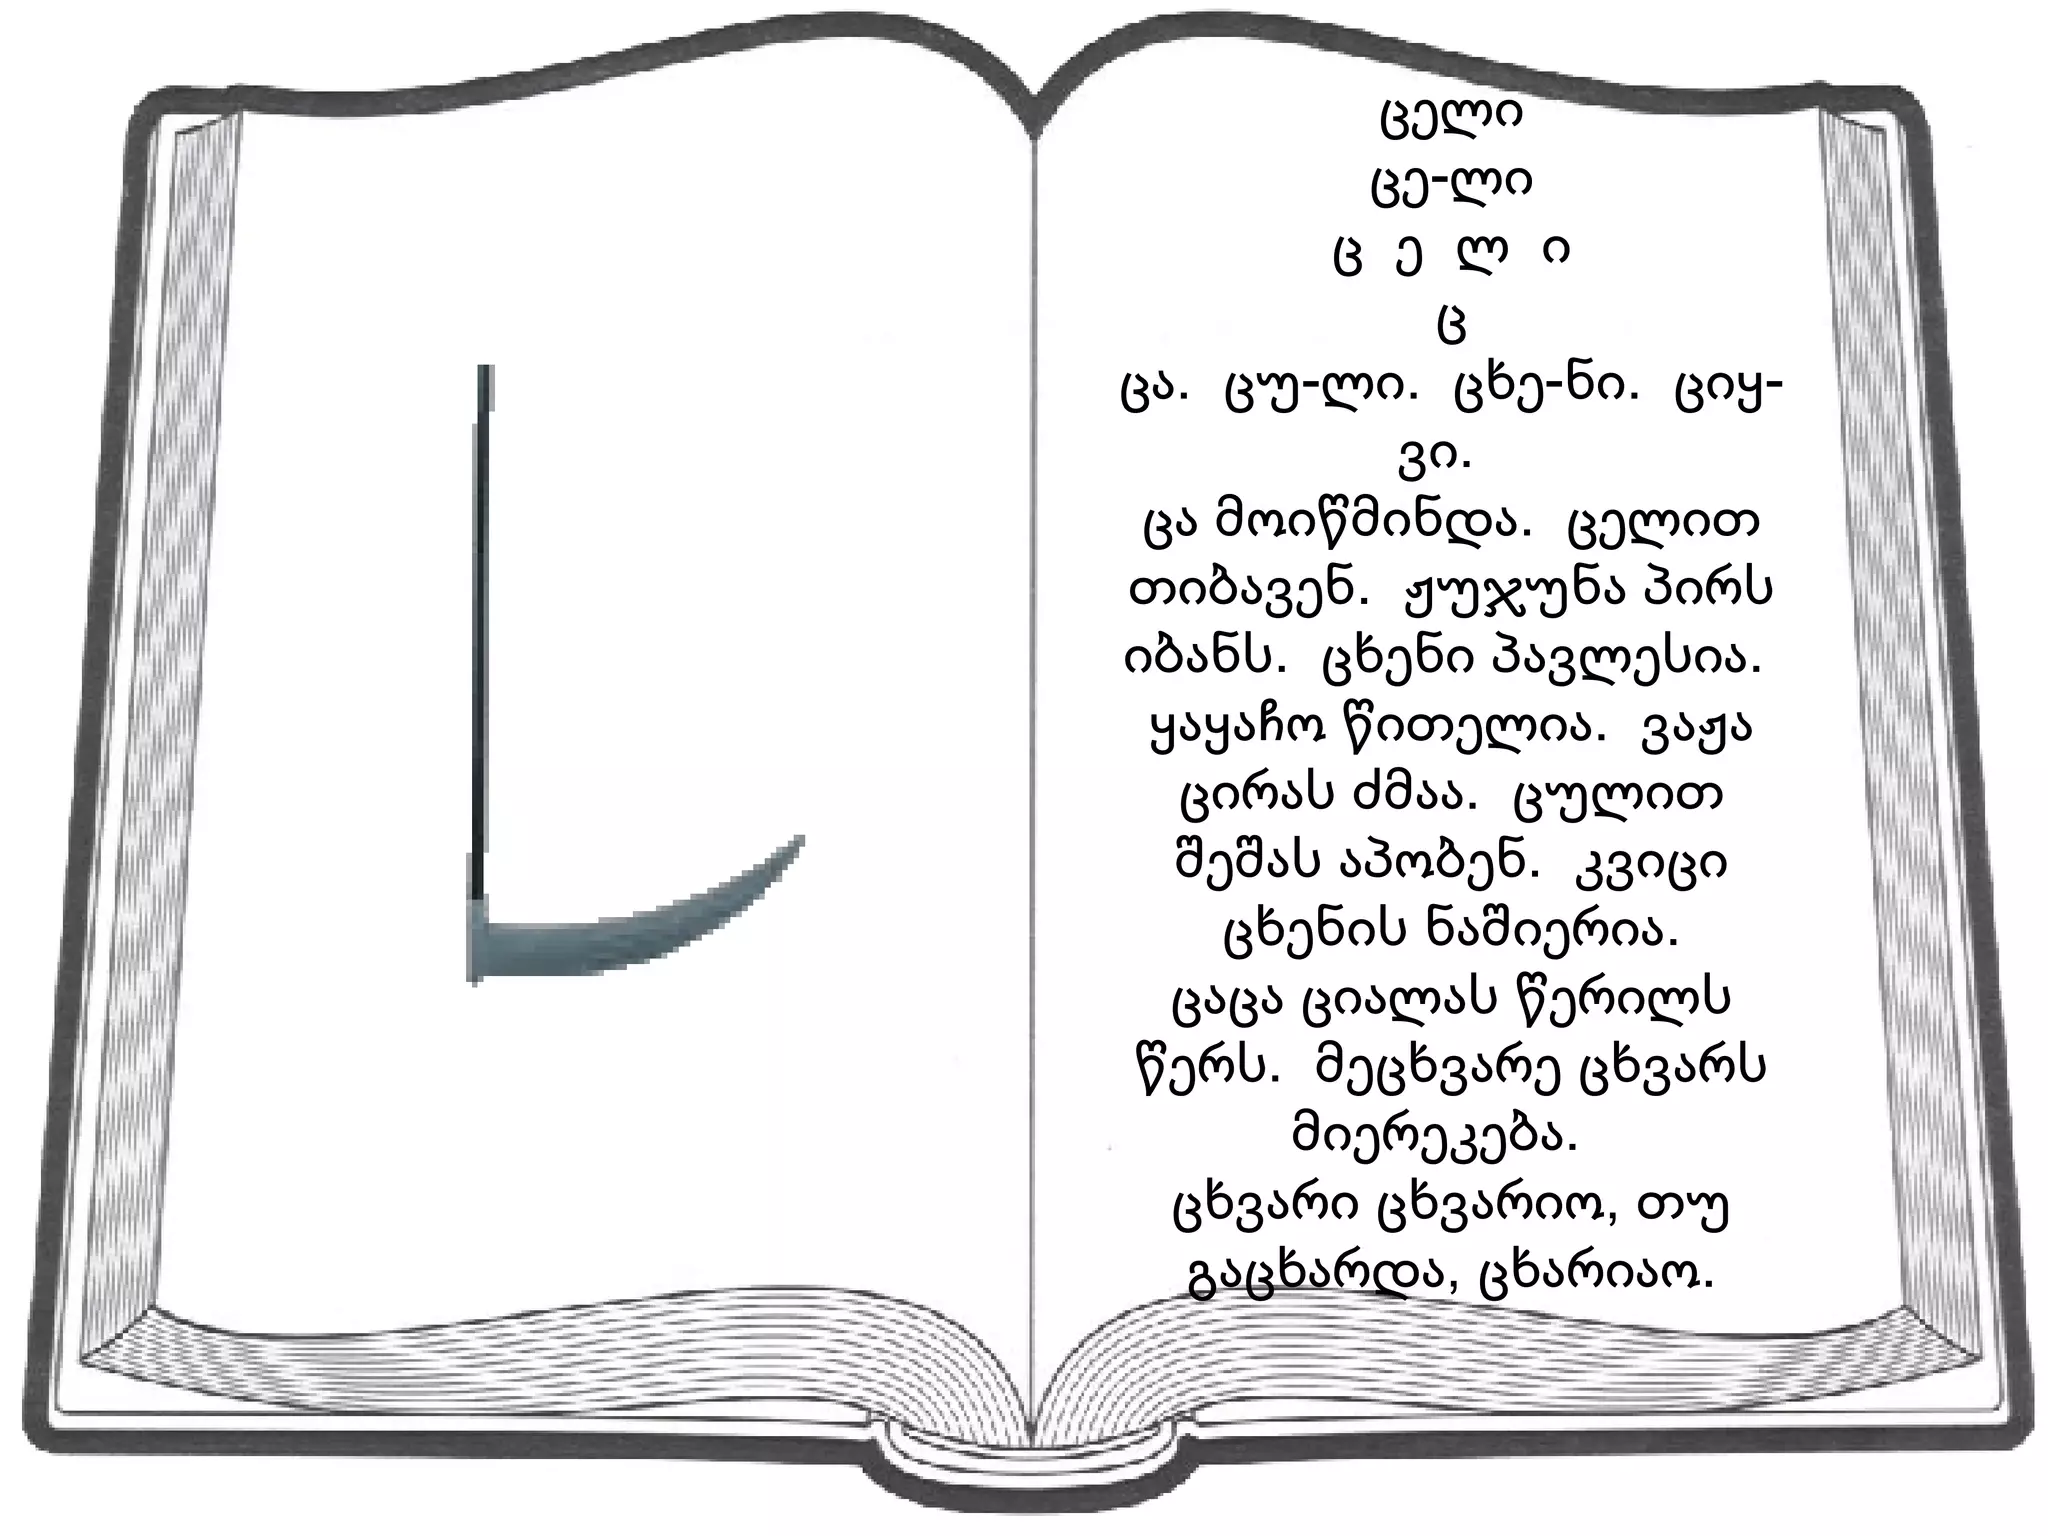 ცელი
ცე-ლი
ც ე ლ ი
ც
ცა. ცუ-ლი. ცხე-ნი. ციყ-
ვი.
ცა მოიწმინდა. ცელით
თიბავენ. ჟუჯუნა პირს
იბანს. ცხენი პავლესია.
ყაყაჩო წითელია. ვაჟა
ცირას ძმაა. ცულით
შეშას აპობენ. კვიცი
ცხენის ნაშიერია.
ცაცა ციალას წერილს
წერს. მეცხვარე ცხვარს
მიერეკება.
ცხვარი ცხვარიო, თუ
გაცხარდა, ცხარიაო.